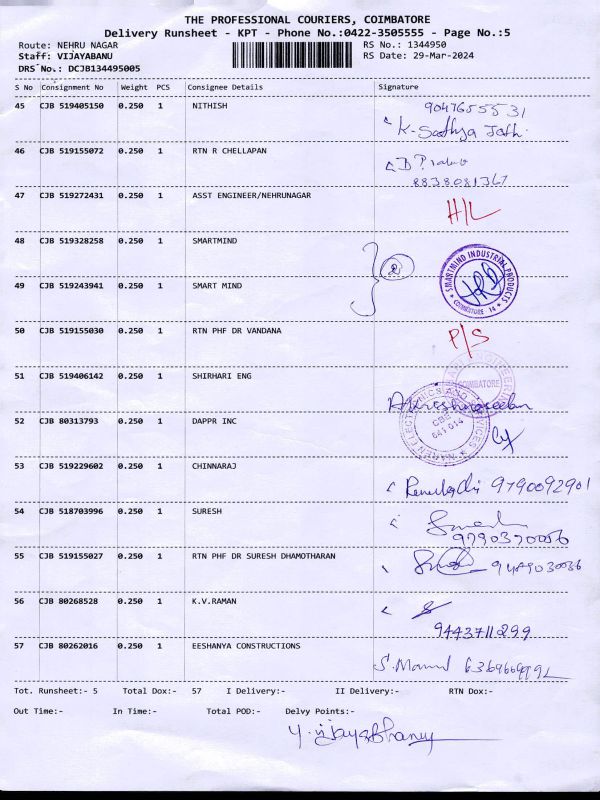 THE PROFESSIONAL COURIERS, COIMBATORE
Delivery Runsheet - KPT - Phone No.:0422-3505555 - Page No.:5
Route: NEHRU NAGAR RS No.: 1344950
Staff: VIJAYABANU RS Date: 29-Mar-2024
DRS No.: DCJB134495005
S No Consignment No Weight PCS Consignee Details Signature
45 CJB 519405150 0.250 1 NITHISH 9047655531
K. Sathya
46 CJB 519155072 0.250 1 RTN R CHELLAPAN
8838081367
47 CJB 519272431 0.250 1 ASST ENGINEER/NEHRUNAGAR H/L
48 CJB 519328258 0.250 1 SMARTMIND
SMARTMIND INDUSTRIAL PRODUCTS
COIMBATORE - 14
49 CJB 519243941 0.250 1 SMART MIND
50 CJB 519155030 0.250 1 RTN PHF DR VANDANA P/S
51 CJB 519406142 0.250 1 SHIRHARI ENG
COIMBATORE
52 CJB 80313793 0.250 1 DAPPR INC
CBE
641 014
53 CJB 519229602 0.250 1 CHINNARAJ 9790092901
54 CJB 518703996 0.250 1 SURESH
9790370056
55 CJB 519155027 0.250 1 RTN PHF DR SURESH DHAMOTHARAN
56 CJB 80268528 0.250 1 K.V.RAMAN
9443711299
57 CJB 80262016 0.250 1 EESHANYA CONSTRUCTIONS
Tot. Runsheet:- 5 Total Dox:- 57 I Delivery:- II Delivery:- RTN Dox:-
Out Time:- In Time:- Total POD:- Delvy Points:-